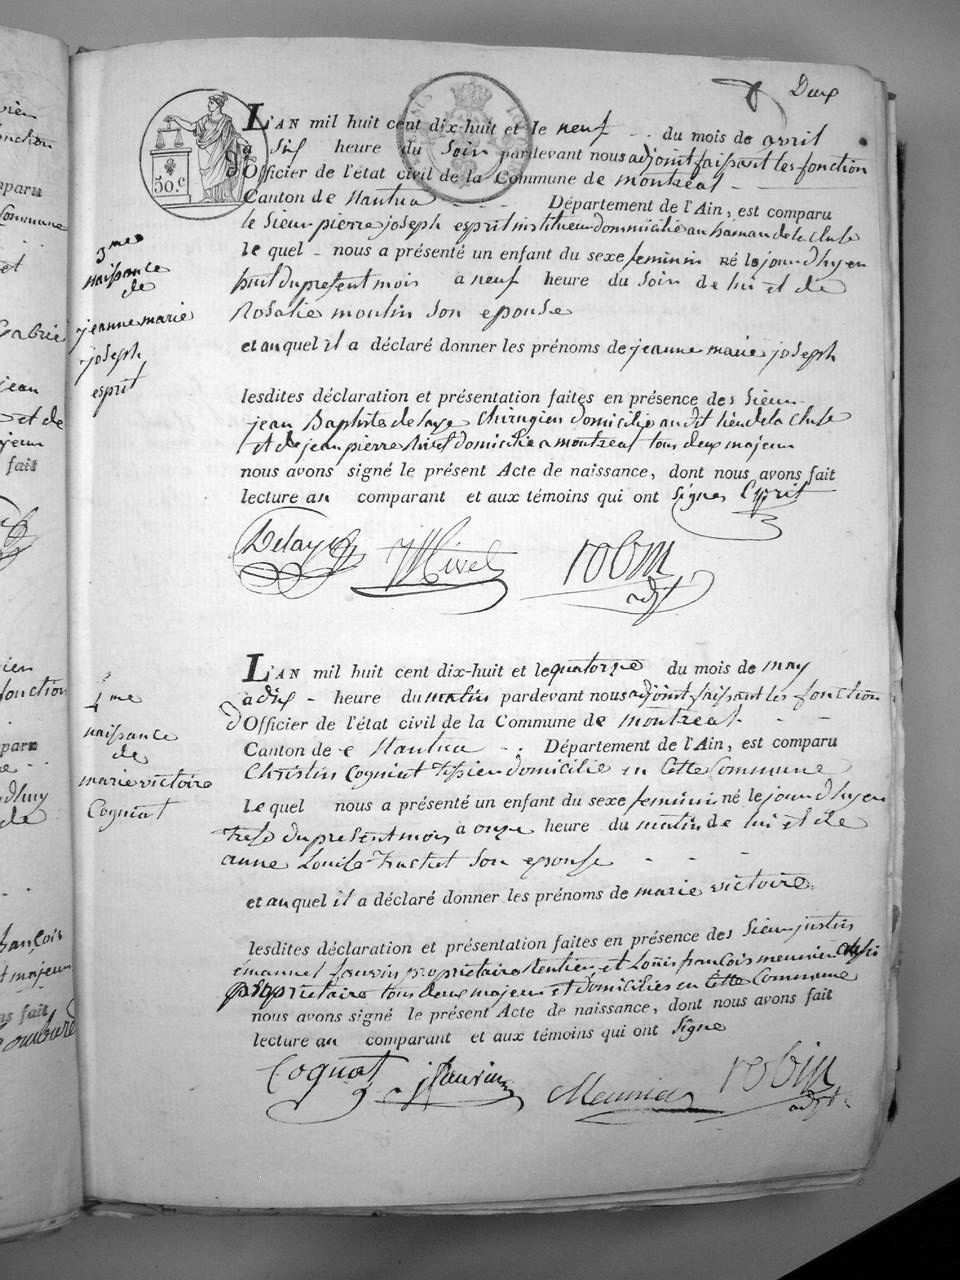 Deux
50 c
L'AN mil huit cent dix-huit et le neuf du mois de avril
à six heure du Soir pardevant nous adjoint faisant les fonction
d'Officier de l'état civil de la Commune de montreal
Canton de Nantua Département de l'Ain, est comparu
le Sieur pierre joseph esprit instituteur domicilié au hamau de la Cluse
le quel nous a présenté un enfant du sexe feminin né le jour d'hyer
huit du present mois à neuf heure du Soir de lui et de
Rosalie moulin Son epouse
et auquel il a déclaré donner les prénoms de jeanne marie joseph
3me
naissance
de
jeanne marie
joseph
esprit
lesdites déclaration et présentation faites en présence des Sieur
jean Baptiste delaye Chirurgien domicilié audit lieu de la Cluse
Et de jean pierre nivet domicilié a montreal tous deux majeur
nous avons signé le présent Acte de naissance, dont nous avons fait
lecture au comparant et aux témoins qui ont Signés Esprit
Delaye Nivet robin
adjt
L'AN mil huit cent dix-huit et le quatorze du mois de may
à dix heure du matin pardevant nous adjoint faisant les fonction
d'Officier de l'état civil de la Commune de montreal
Canton de Nantua Département de l'Ain, est comparu
Christin Cogniat domicilié en Cette Commune
le quel nous a présenté un enfant du sexe feminin né le jour d'hyer
trese du present mois à onze heure du matin de lui et de
anne Louise Son epouse
et auquel il a déclaré donner les prénoms de marie victoire
4me
naissance
de
marie victoire
Cogniat
lesdites déclaration et présentation faites en présence des Sieur justin
émanuel propriétaire Rentier et Louis françois meunier aussi
propriétaire tous deux majeur et domiciliés en Cette Commune
nous avons signé le présent Acte de naissance, dont nous avons fait
lecture au comparant et aux témoins qui ont Signé
Cogniat Meunier robin
adjt